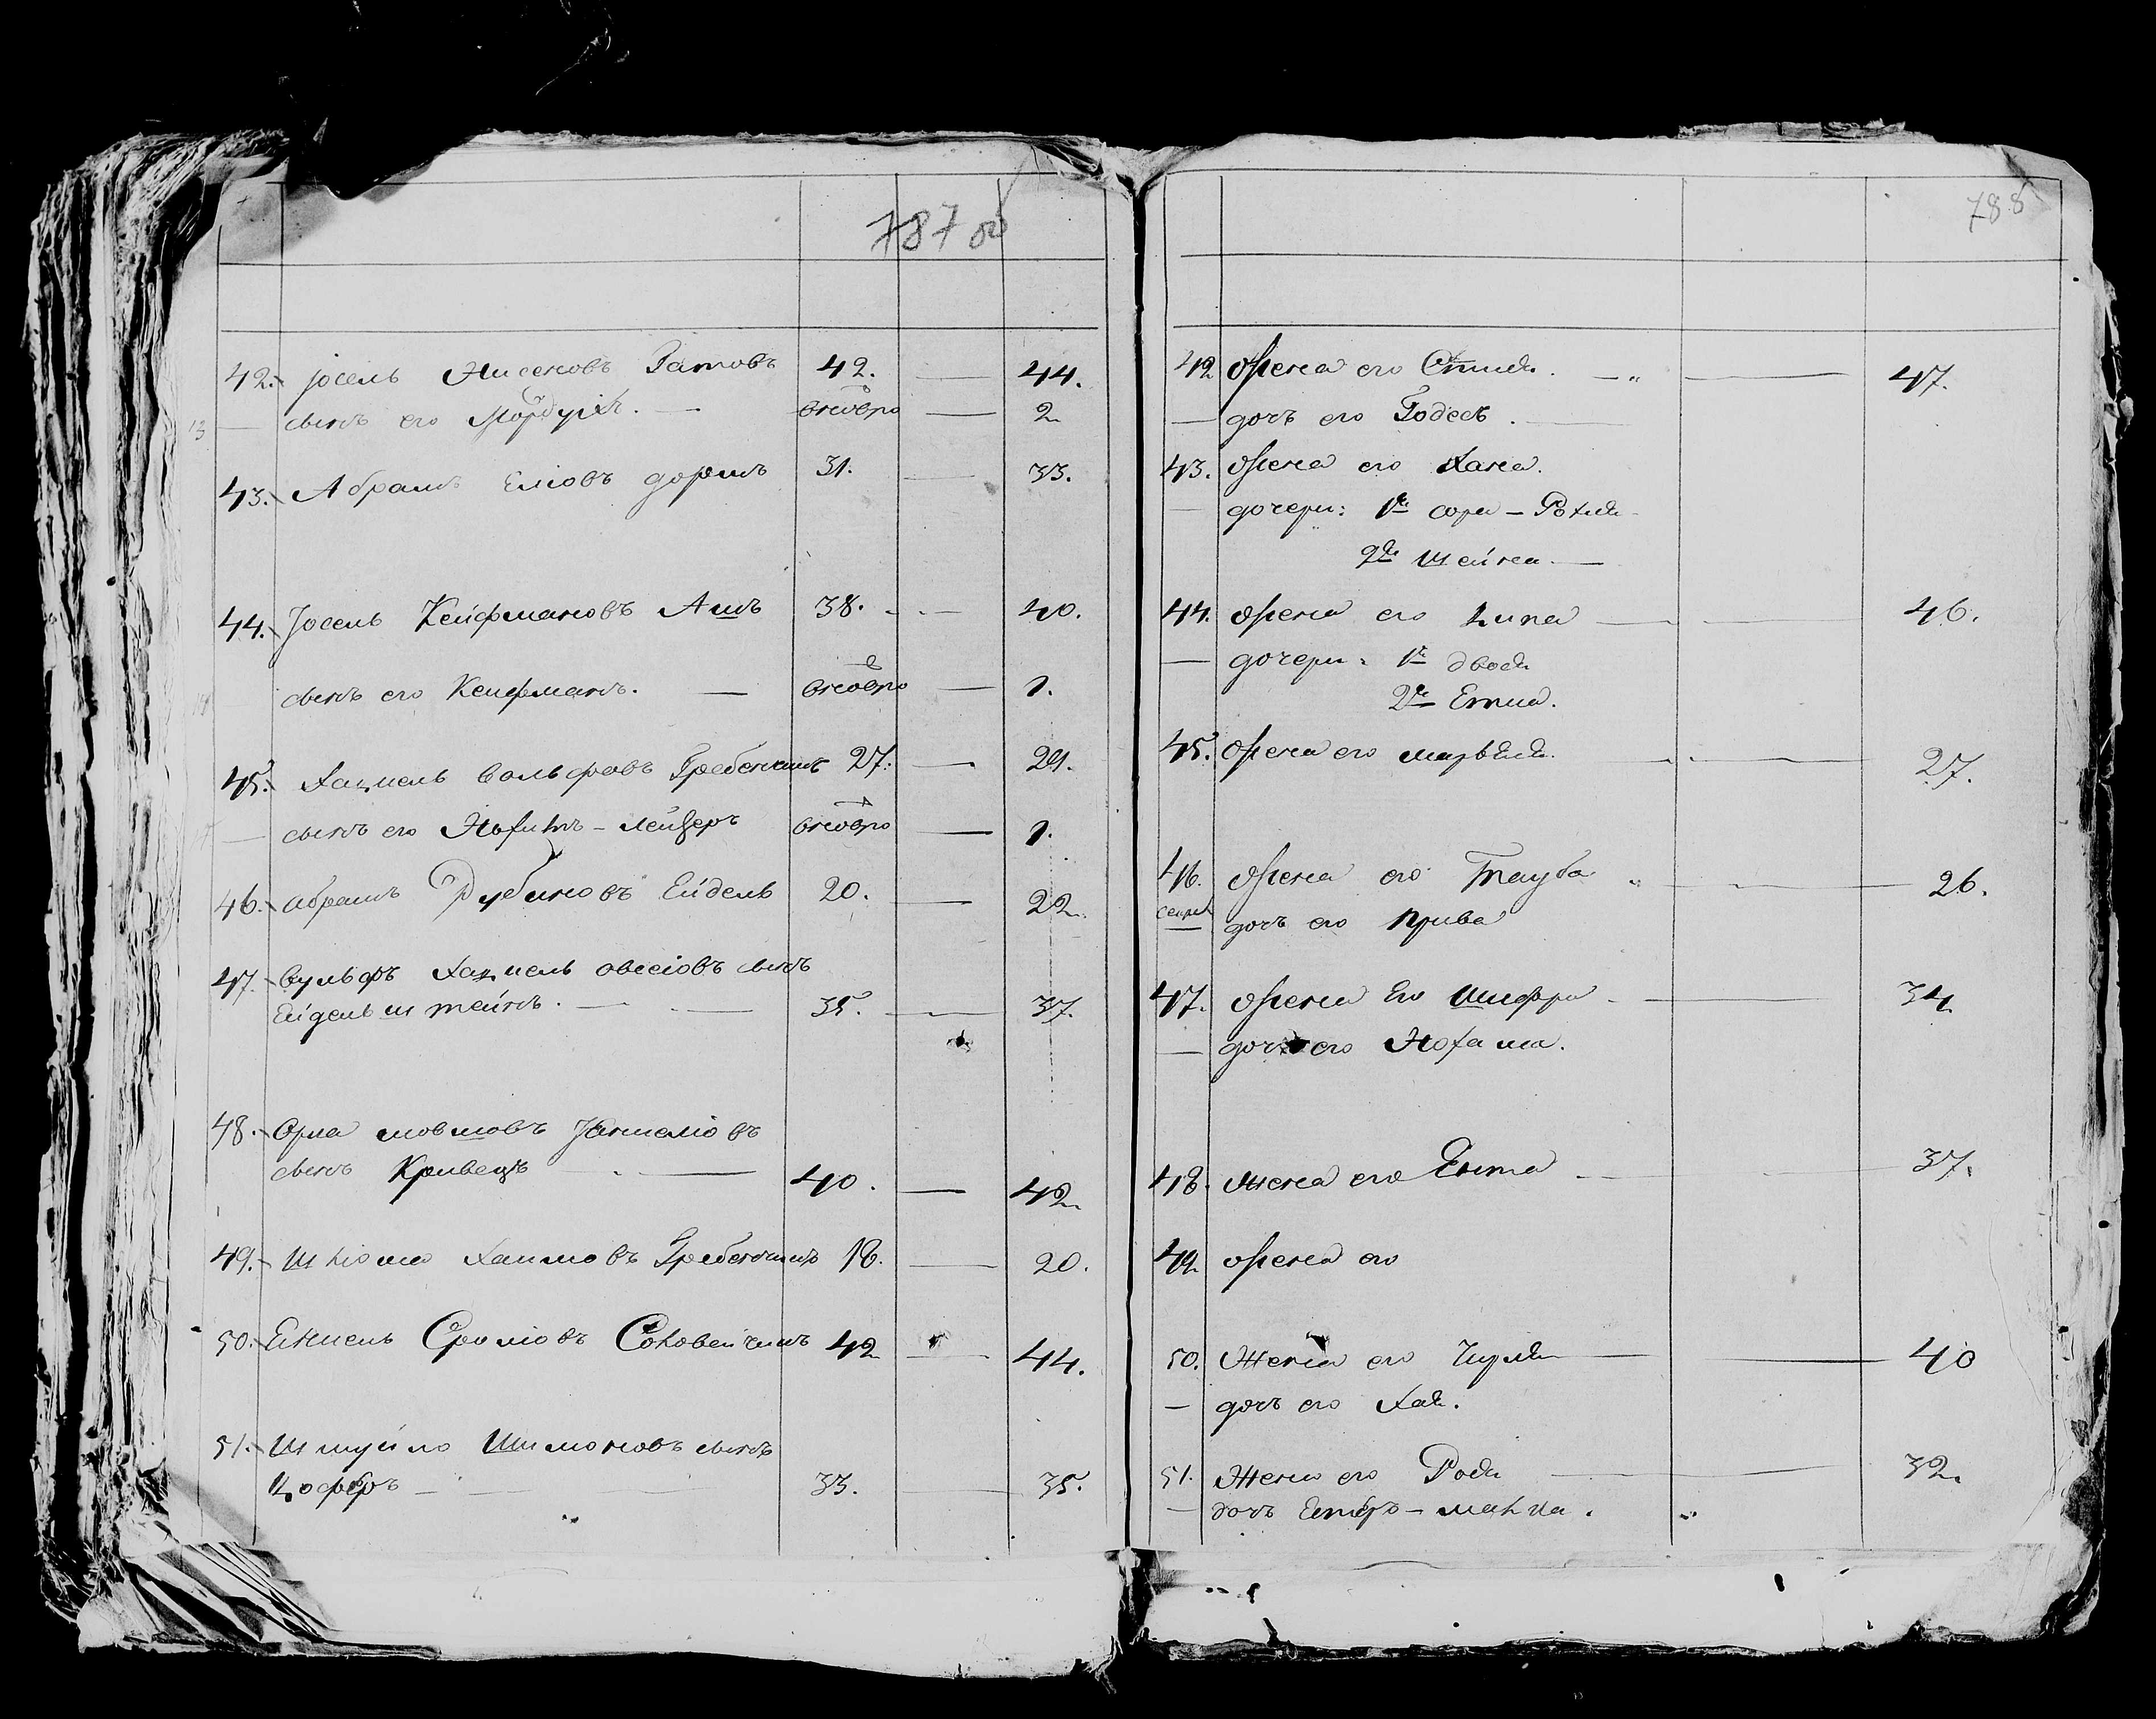 787 об
42. Іосель Нисеновъ Гатовъ 42. — 44.
— сынъ его Мордухъ. — вновь — 2
43. Абрамъ Еліовъ 31. — 33.
44. Іосель Кейфмановъ Ашъ 38. — 40.
сынъ его Кейфманъ. — вновь — 1.
45. Хацкель Вольфовъ Гребенчикъ 27. — 29.
— сынъ его Лейзеръ вновь — 1.
46. Абрамъ Рубиновъ Ейдель 20. — 22.
47. Вульфъ Хацкель Овсеіовъ сынъ
Ейдельштейнъ. — 35. — 37.
48. Мовшовъ
сынъ Кривецъ — 40. — 42.
49. Шліома Хаимовъ Гребенчикъ 18. — 20.
50. Сроліовъ Соловейчикъ 42 — 44.
51. Шмуйло Шимоновъ сынъ
Цоферъ — 33. — 35.
788
42 жена его — 47.
— дочь его Годесъ. —
43. жена его Хана.
— дочери: 1я Сора – Рохля
2я Шейна. —
44. жена его Липа — 46.
— дочери: 1я Двося
2я Етка.
45. жена его — 27.
46. жена его Тауба — 26.
дочь его Прива
47. жена его Шифра — 34.
— дочь его Нохама.
48. жена его Ента — 37.
49 жена его
50. Жена его — 40
— дочь его Хая.
51. Жена его Родя — 32.
— дочь Естеръ – Малка.